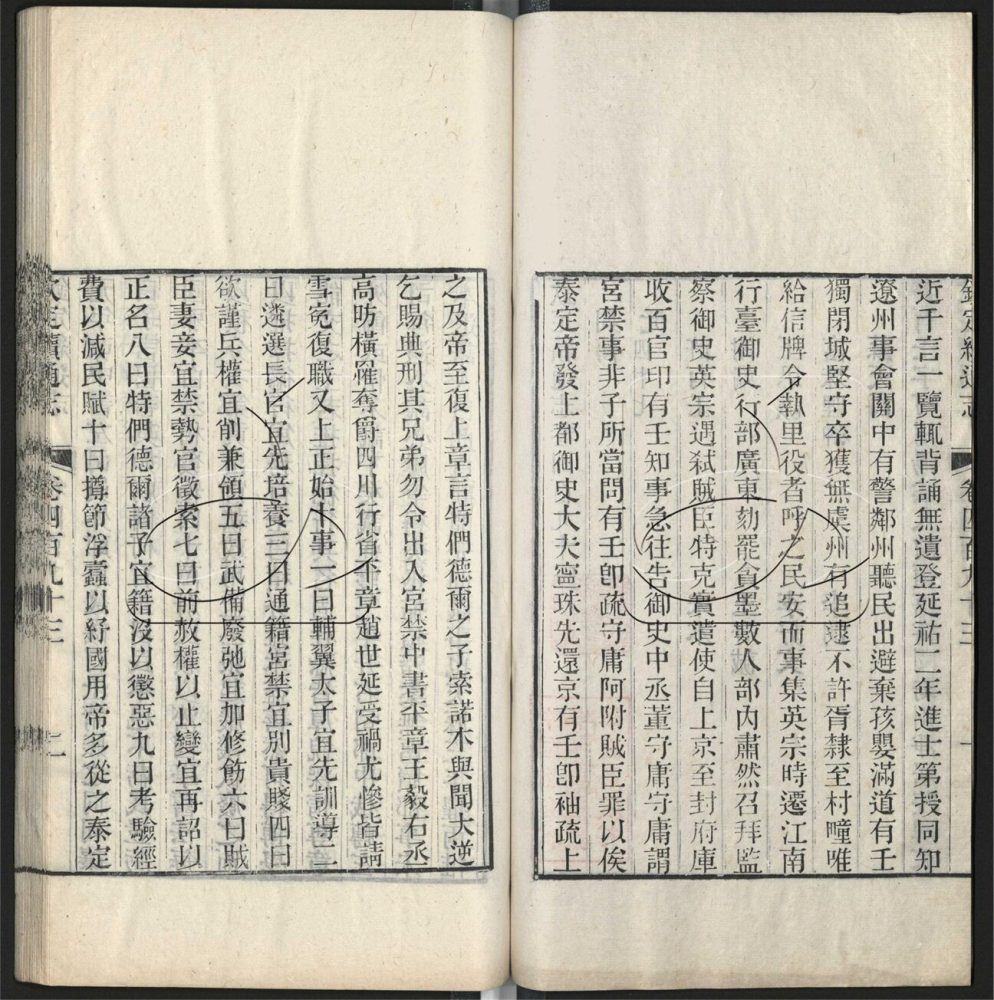 欽定續通志 卷四百九十三 一
近千言一覽輒背誦無遺登延祐二年進士第授同知
遼州事會關中有警鄰州聽民出避棄孩嬰滿道有壬
獨閉城堅守卒獲無虞州有追逮不許胥隸至村疃唯
給信牌令執里役者呼之民安而事集英宗時遷江南
行臺御史行部廣東劾罷貪墨數人部內肅然召拜監
察御史英宗遇弒賊臣特克實遣使自上京至封府庫
收百官印有壬知事急往告御史中丞董守庸守庸謂
宮禁事非子所當問有壬卽疏守庸阿附賊臣罪以俟
泰定帝發上都御史大夫寧珠先還京有壬卽袖疏上
之及帝至復上章言特們德爾之子索諾木與聞大逆
乞賜典刑其兄弟勿令出入宮禁中書平章王毅右丞
高昉橫罹奪爵四川行省平章趙世延受禍尤慘皆請
雪冤復職又上正始十事一曰輔翼太子宜先訓導二
曰遴選長官宜先培養三曰通籍宮禁宜別貴賤四曰
欲謹兵權宜削兼領五曰武備廢弛宜加修飭六曰賊
臣妻妾宜禁勢官徵索七曰前赦權以止變宜再詔以
正名八曰特們德爾諸子宜籍沒以懲惡九曰考驗經
費以減民賦十曰撙節浮蠹以紓國用帝多從之泰定
欽定續通志 卷四百九十三 二